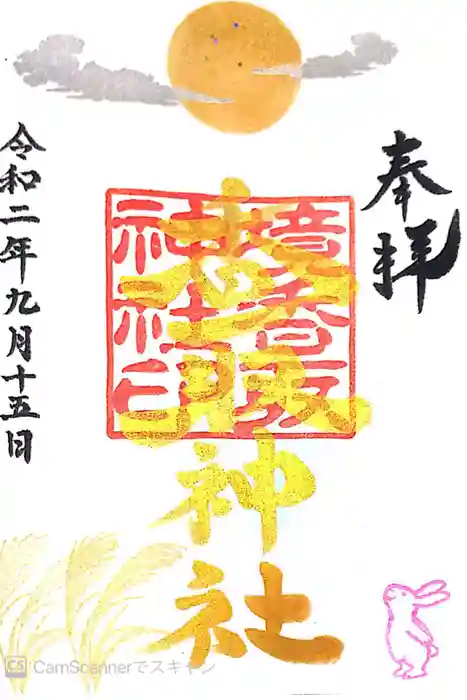 奉拝
境香取
神社印
香取神社
令和二年九月十五日
CS CamScannerでスキャン